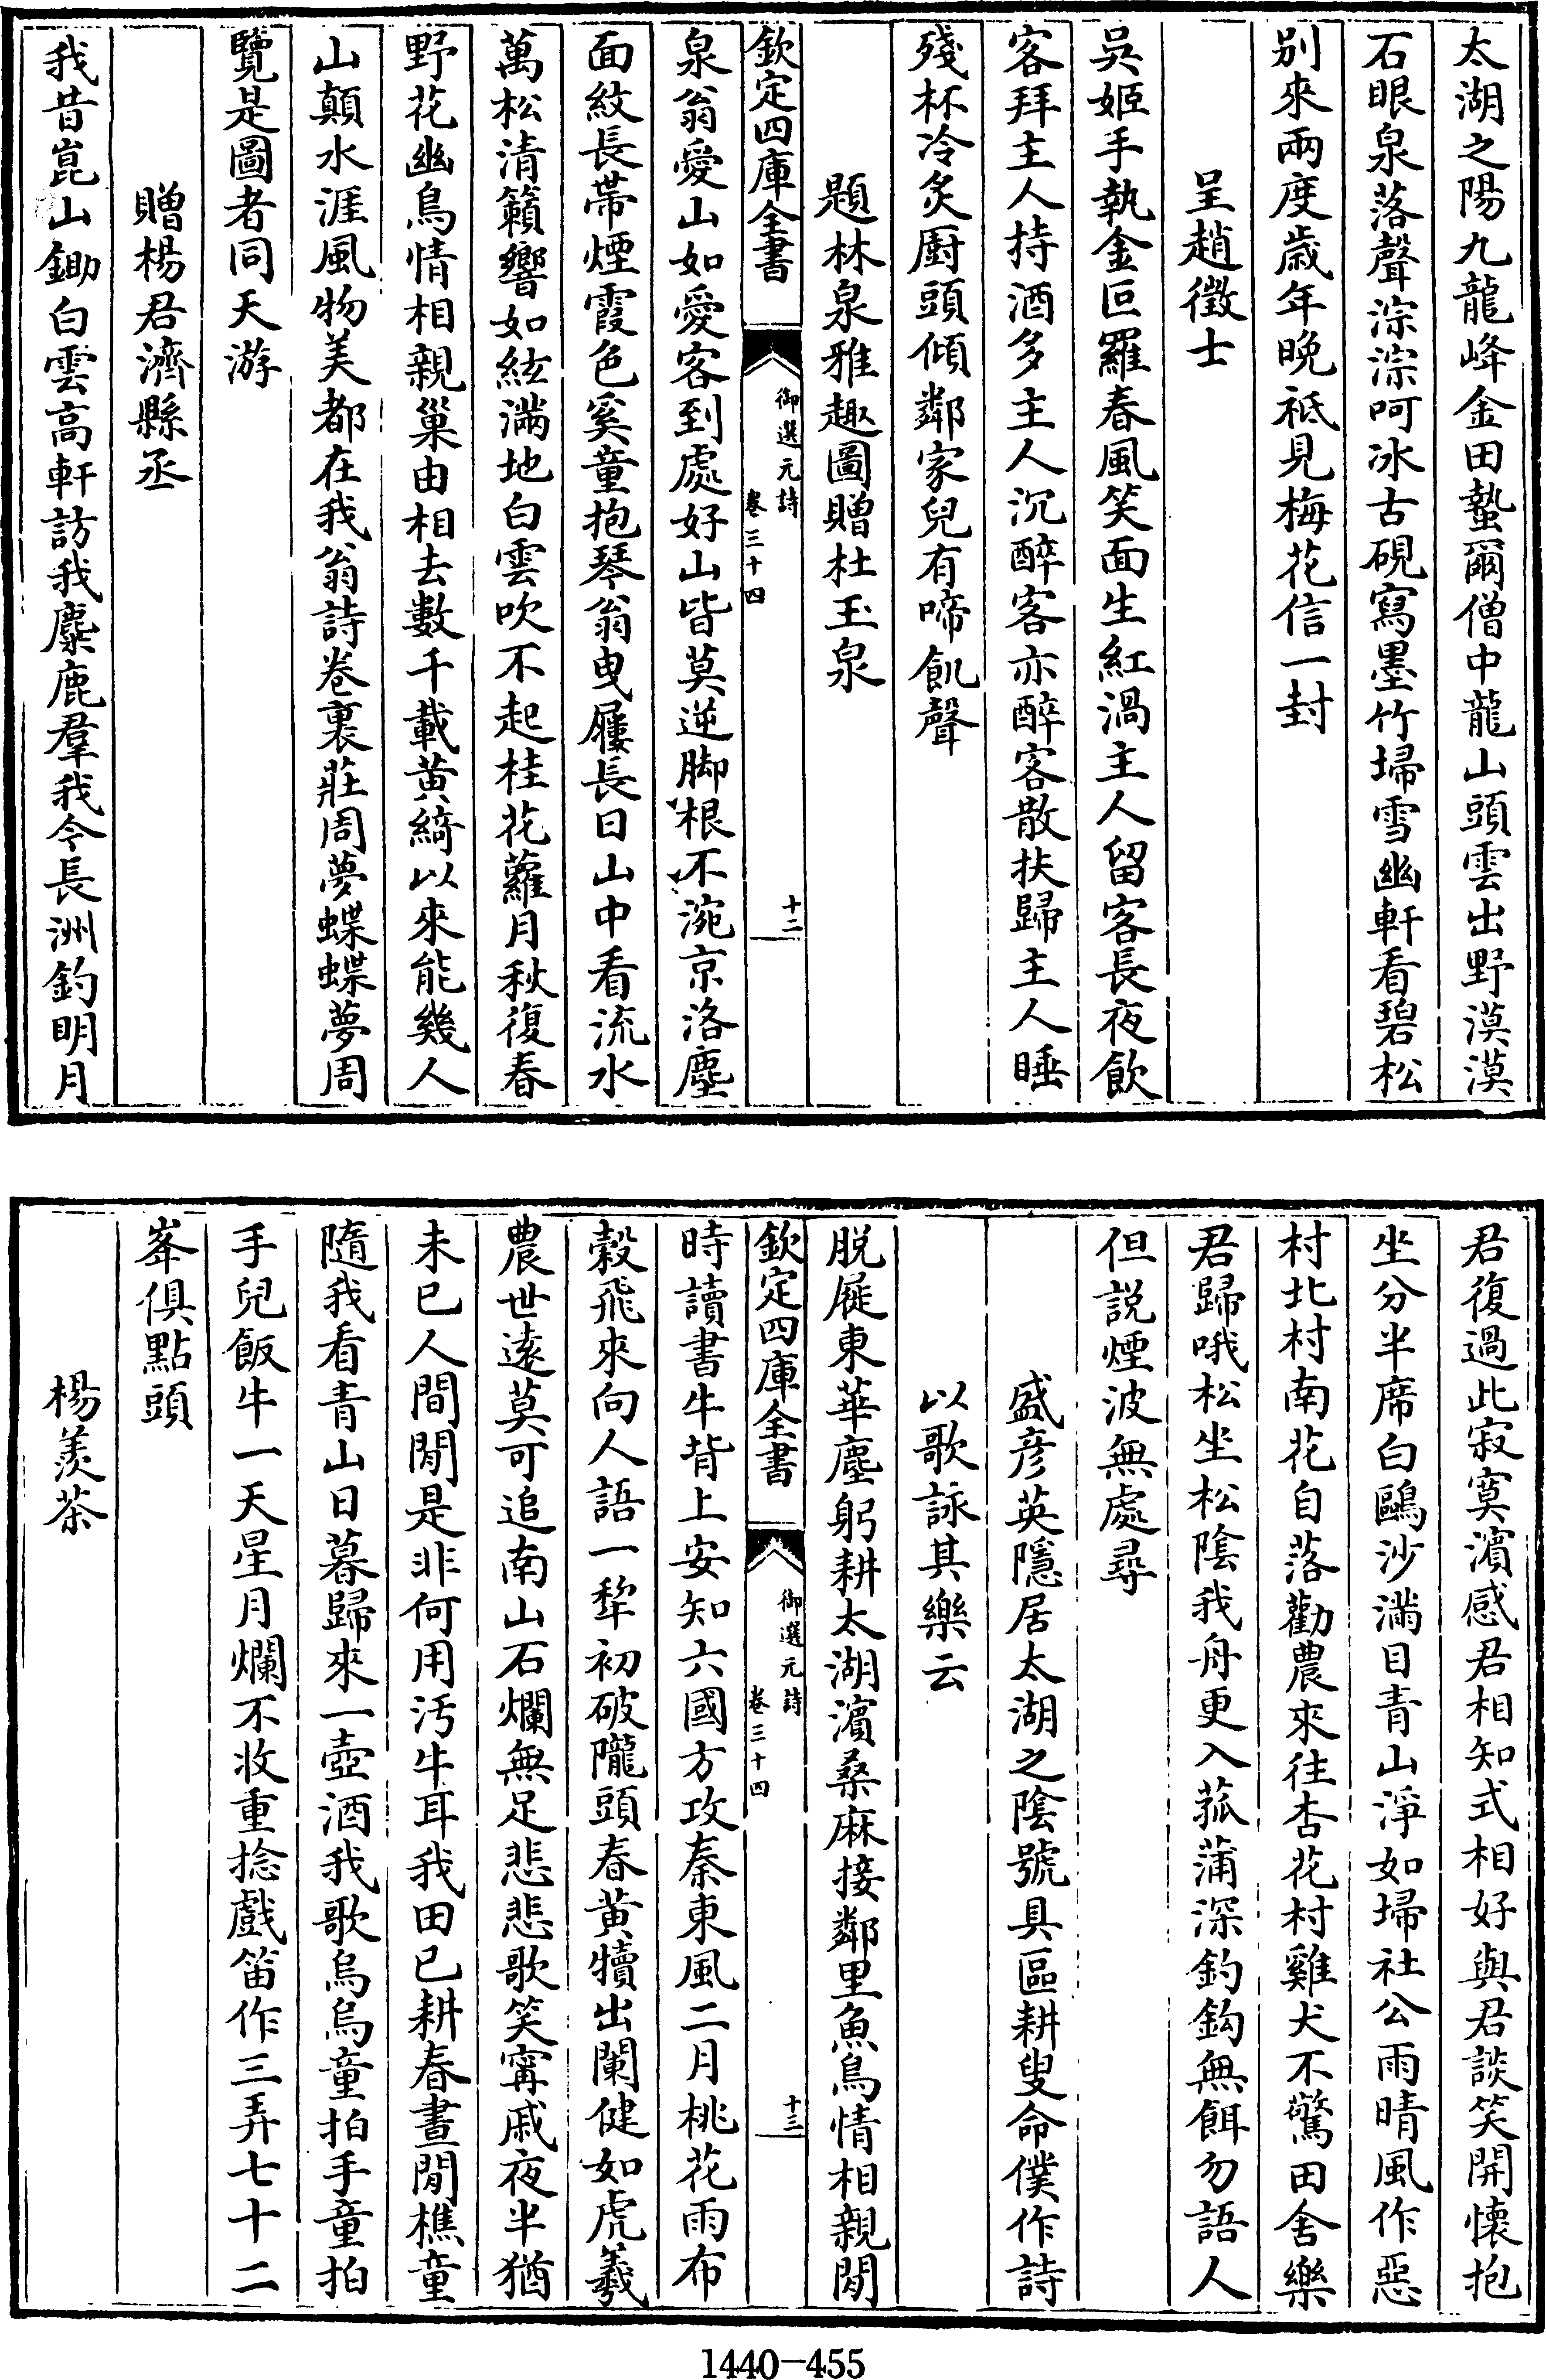 太湖之陽九龍峰金田蟄爾僧中龍山頭雲出野漠漠
石眼泉落聲淙淙呵冰古硯寫墨竹埽雪幽軒看碧松
别來兩度歲年晚祗見梅花信一封
呈趙徵士
吳姬手執金叵羅春風笑面生紅渦主人留客長夜飲
客拜主人持酒多主人沉醉客亦醉客散扶歸主人睡
殘杯冷炙厨頭傾鄰家兒有啼飢聲
題林泉雅趣圖贈杜玉泉
欽定四庫全書
御選元詩
卷三十四
十二
泉翁愛山如愛客到處好山皆莫逆脚根不涴京洛塵
面紋長帶煙霞色奚童抱琴翁曳屨長日山中看流水
萬松清籟響如絃滿地白雲吹不起桂花蘿月秋復春
野花幽鳥情相親巢由相去數千載黄綺以來能幾人
山顛水涯風物美都在我翁詩卷裏莊周夢蝶蝶夢周
覽是圖者同天游
贈楊君濟縣丞
我昔崑山鋤白雲高軒訪我麋鹿羣我今長洲釣明月
君復過此寂寞濱感君相知式相好與君談笑開懷抱
坐分半席白鷗沙滿目青山淨如埽社公雨晴風作惡
村北村南花自落勸農來往杏花村雞犬不驚田舍樂
君歸哦松坐松陰我舟更入菰蒲深釣鈎無餌勿語人
但説煙波無處尋
盛彦英隱居太湖之陰號具區耕叟命僕作詩
以歌詠其樂云
脱屣東華塵躬耕太湖濱桑麻接鄰里魚鳥情相親閒
欽定四庫全書
御選元詩
卷三十四
十三
時讀書牛背上安知六國方攻秦東風二月桃花雨布
穀飛來向人語一犂初破隴頭春黄犢出闌健如虎羲
農世遠莫可追南山石爛無足悲悲歌笑寗戚夜半猶
未已人間閒是非何用汚牛耳我田已耕春晝閒樵童
隨我看青山日暮歸來一壺酒我歌烏烏童拍手童拍
手兒飯牛一天星月爛不收重捻戲笛作三弄七十二
峯俱點頭
楊羨茶
1440-455